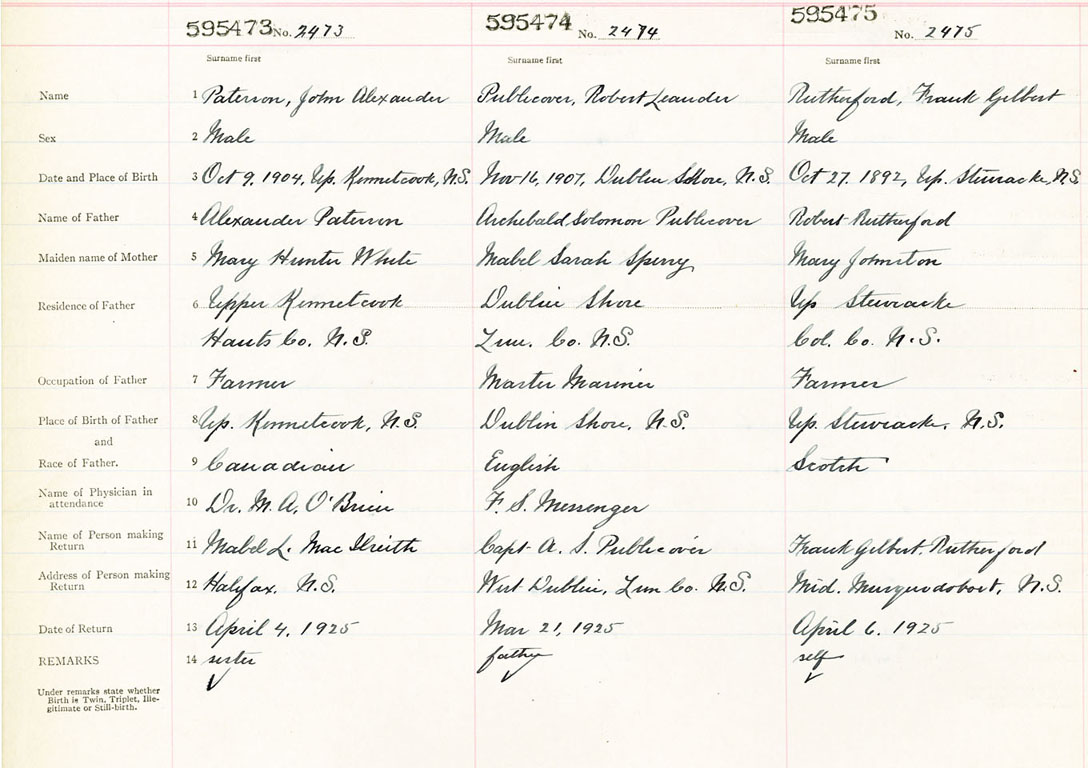 595473 No. 2473 595474 No. 2474 595475 No. 2475
Surname first Surname first Surname first
Name 1 Paterson, John Alexander Publicover, Robert Leander Rutherford, Frank Gilbert
Sex 2 Male Male Male
Date and Place of Birth 3 Oct 9, 1904, Up. Kennetcook, N.S. Nov 16, 1907, Dublin Shore, N.S. Oct 27. 1892, Up. Stewiacke, N.S.
Name of Father 4 Alexander Paterson Archibald Solomon Publicover Robert Rutherford
Maiden name of Mother 5 Mary Hunter White Mabel Sarah Sperry Mary Johnston
Residence of Father 6 Upper Kennetcook Dublin Shore Up Stewiacke
Hants Co. N.S. Lun. Co. N.S. Col. Co. N.S.
Occupation of Father 7 Farmer Master Mariner Farmer
Place of Birth of Father 8 Up. Kennetcook, N.S. Dublin Shore, N.S. Up. Stewiacke, N.S.
and
Race of Father. 9 Canadian English Scotch
Name of Physician in
attendance 10 Dr. M. A. O'Brien F. S. Messenger
Name of Person making
Return 11 Mabel L. MacIlreith Capt A. S. Publicover Frank Gilbert Rutherford
Address of Person making
Return 12 Halifax, N.S. West Dublin, Lun Co. N.S. Mid. Musquodoboit, N.S.
Date of Return 13 April 4, 1925 Mar 21, 1925 April 6, 1925
REMARKS 14 sister father self
Under remarks state whether
Birth is Twin, Triplet, Ille-
gitimate or Still-birth.